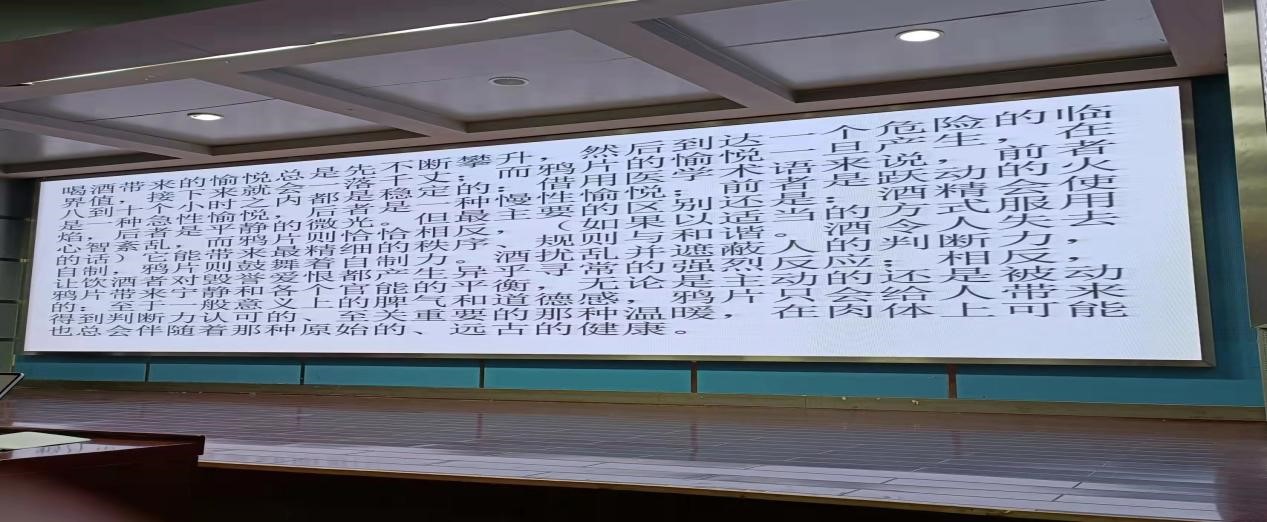 喝酒带来的愉悦总是先不断攀升，然后到达一个危险的临
界值，接下来就会一落千丈；而鸦片的愉悦一旦产生，在
八到十个小时之内都是稳定的：借用医学术语来说，前者
是一种急性愉悦，后者是一种慢性愉悦；前者是跃动的火
焰，后者是平静的微光。但最主要的区别还是：酒精会使
心智紊乱，而鸦片则恰恰相反，（如果以适当的方式服用
的话）它能带来最精细的秩序、规则与和谐。酒令人失去
自制，鸦片则鼓舞着自制力。酒扰乱并遮蔽人的判断力，
让饮酒者对毁誉爱恨都产生异乎寻常的强烈反应；相反，
鸦片带来宁静和各个官能的平衡，无论是主动的还是被动
的；至于一般意义上的脾气和道德感，鸦片只会给人带来
得到判断力认可的、至关重要的那种温暖，在肉体上可能
也总会伴随着那种原始的、远古的健康。